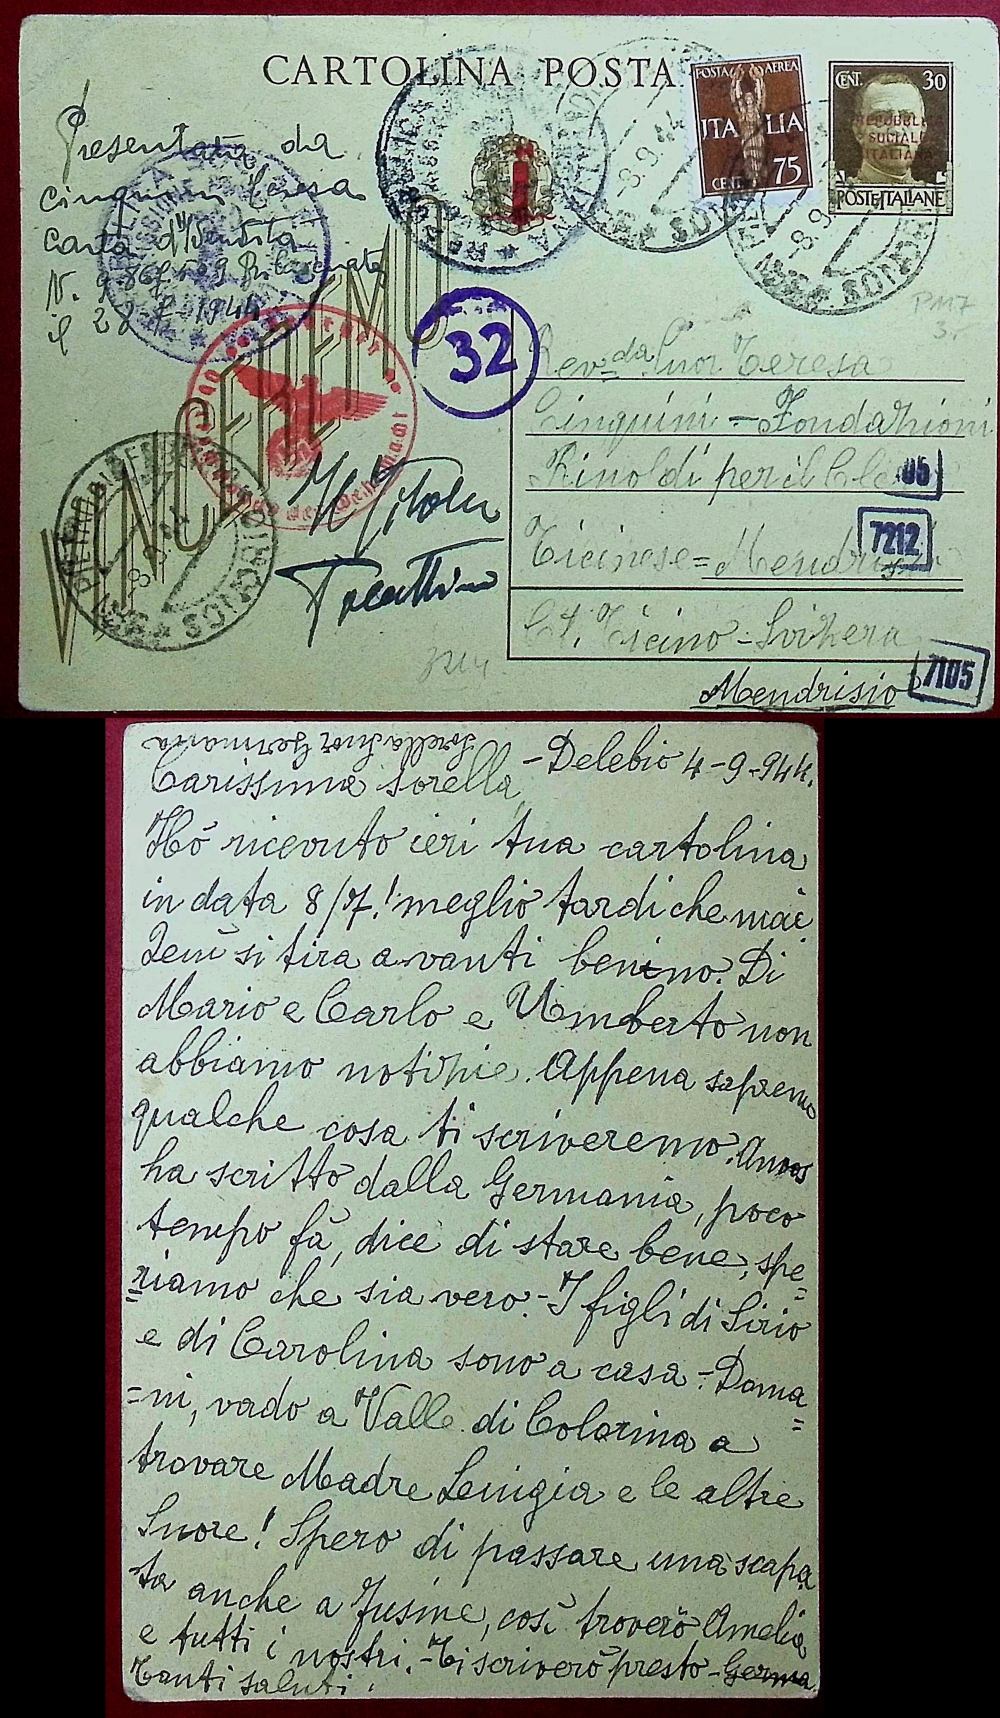 CARTOLINA POSTA
POSTA AEREA
ITALIA
CENT. 75
CENT. 30
REPUBBLICA
SOCIALE
ITALIANA
POSTE ITALIANE
Presentata da
Cinquini Teresa
Carta d'Identità
N. Rilasciata
il 1944
VINCEREMO
32
8.9.44
8.9.44
PM7
3.-
Rev.da Suor Teresa
Cinquini - Fondazioni
Rinoldi per il Cle
Ticinese = Mendrisio
Ct. Ticino - Svizzera
Mendrisio
05
7212
7105
Sorella Suor Germana
Carissima sorella, - Delebio 4-9-944.
Hó ricevuto ieri tua cartolina
in data 8/7! meglio tardi che mai
si tira avanti benino. Di
Mario e Carlo e Umberto non
abbiamo notizie. Appena sapremo
qualche cosa ti scriveremo.
ha scritto dalla Germania, poco
tempo fà, dice di stare bene, spe=
=riamo che sia vero. - I figli di Sirio
e di Carolina sono a casa - Doma=
=ni, vado a Valle di Colorina a
trovare Madre Luigia e le altre
Suore! Spero di passare una scapa
ta anche a Fusine, così troverò Amelia
e tutti i nostri. - Ti scriverò presto - Germa
Tanti saluti.